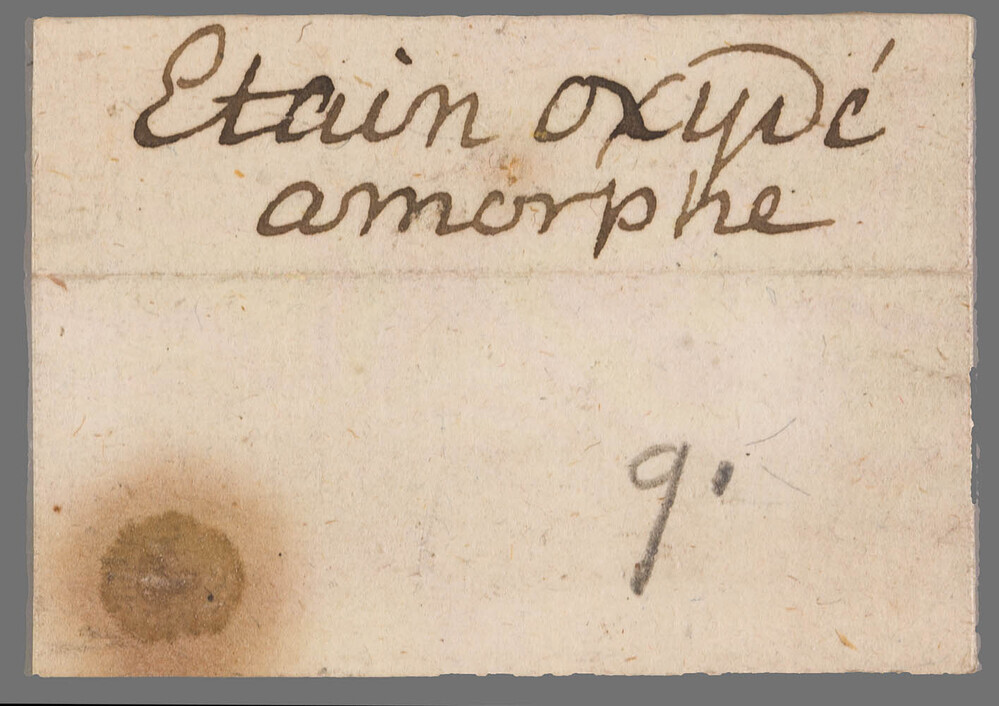 Etain oxydé
amorphe
9.